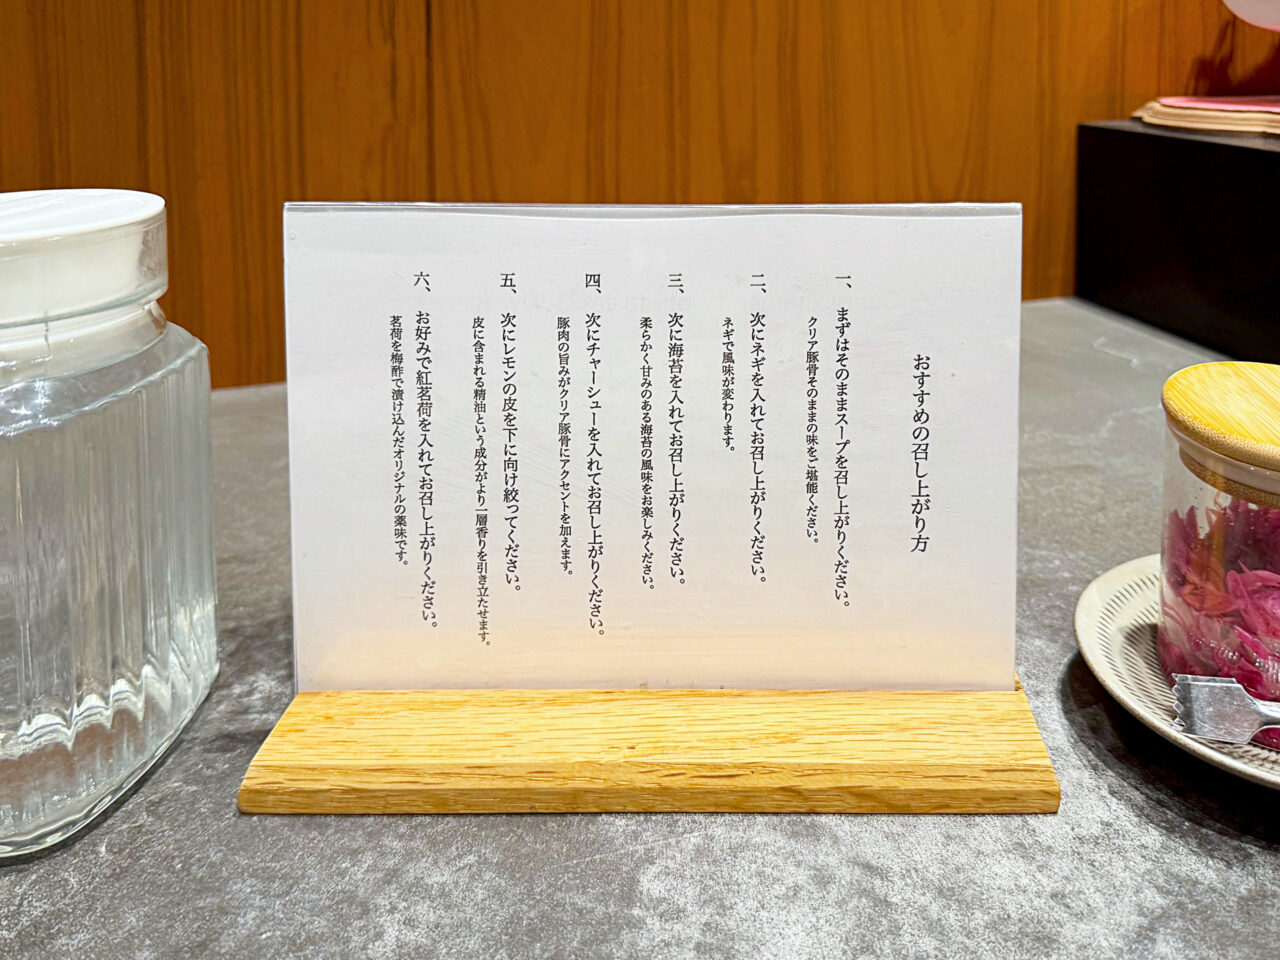 おすすめの召し上がり方
一、まずはそのままスープを召し上がりください。
クリア豚骨そのままの味をご堪能ください。
二、次にネギを入れてお召し上がりください。
ネギで風味が変わります。
三、次に海苔を入れてお召し上がりください。
柔らかく甘みのある海苔の風味をお楽しみください。
四、次にチャーシューを入れてお召し上がりください。
豚肉の旨みがクリア豚骨にアクセントを加えます。
五、次にレモンの皮を下に向け絞ってください。
皮に含まれる精油という成分がより一層香りを引き立たせます。
六、お好みで紅茗荷を入れてお召し上がりください。
茗荷を梅酢で漬け込んだオリジナルの薬味です。